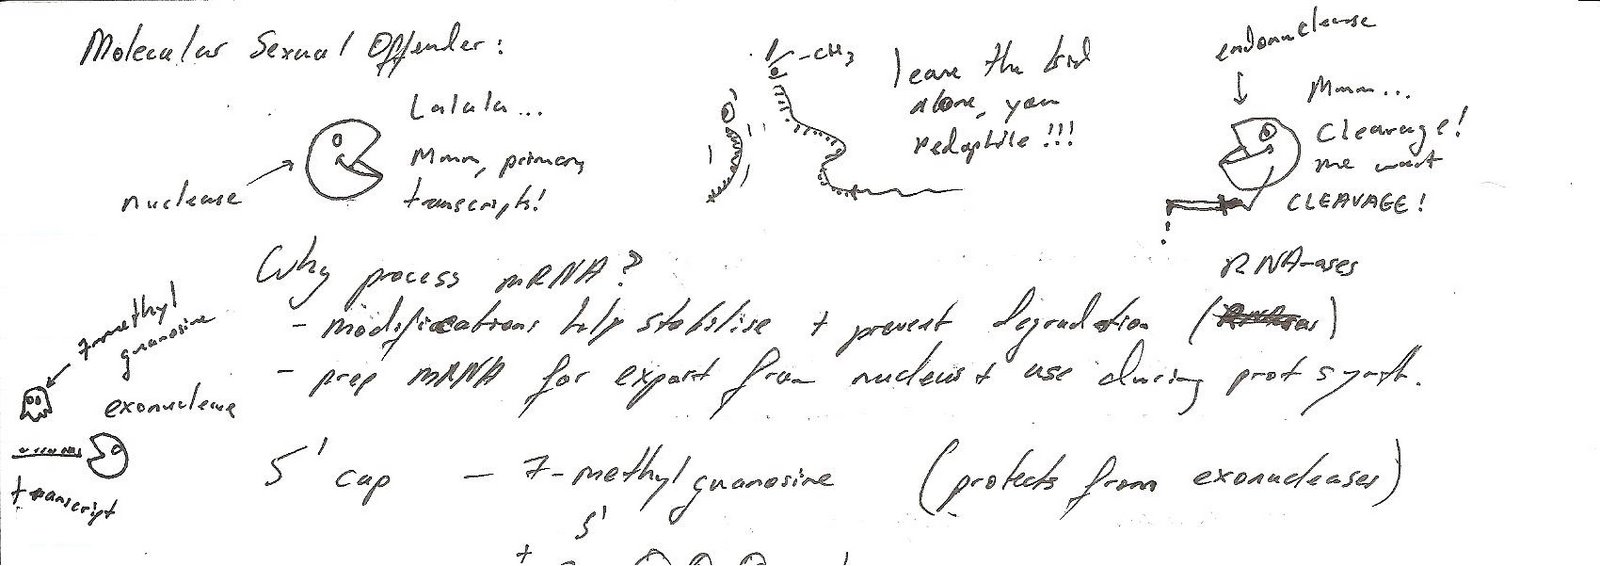 Molecular Sexual Offender:
nuclease
Lalala...
Mmm, primary
transcripts!
-CH3
leave the kid
alone, you
pedophile!!!
endonuclease
Mmm...
Cleavage!
me want
CLEAVAGE!
Why process mRNA?
RNA-ases
- modifications help stabilise + prevent degradation ( )
- prep mRNA for export from nucleus + use during prot synth.
7-methyl
guanosine
exonuclease
transcript
5' cap - 7-methyl guanosine (protects from exonucleases)
5'
+